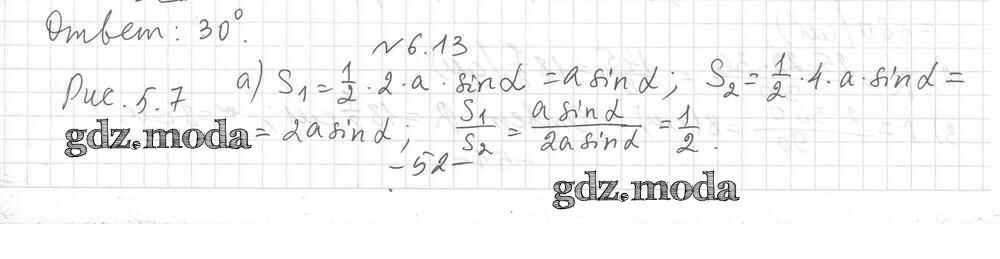 Ответ: 30°.
№6.13
Рис. 5.7 а) S₁ = 1/2 · 2 · a · sinα = a sinα; S₂ = 1/2 · 4 · a · sinα =
= 2a sinα; S₁/S₂ = a sinα / 2a sinα = 1/2.
gdz.moda
-52-
gdz.moda